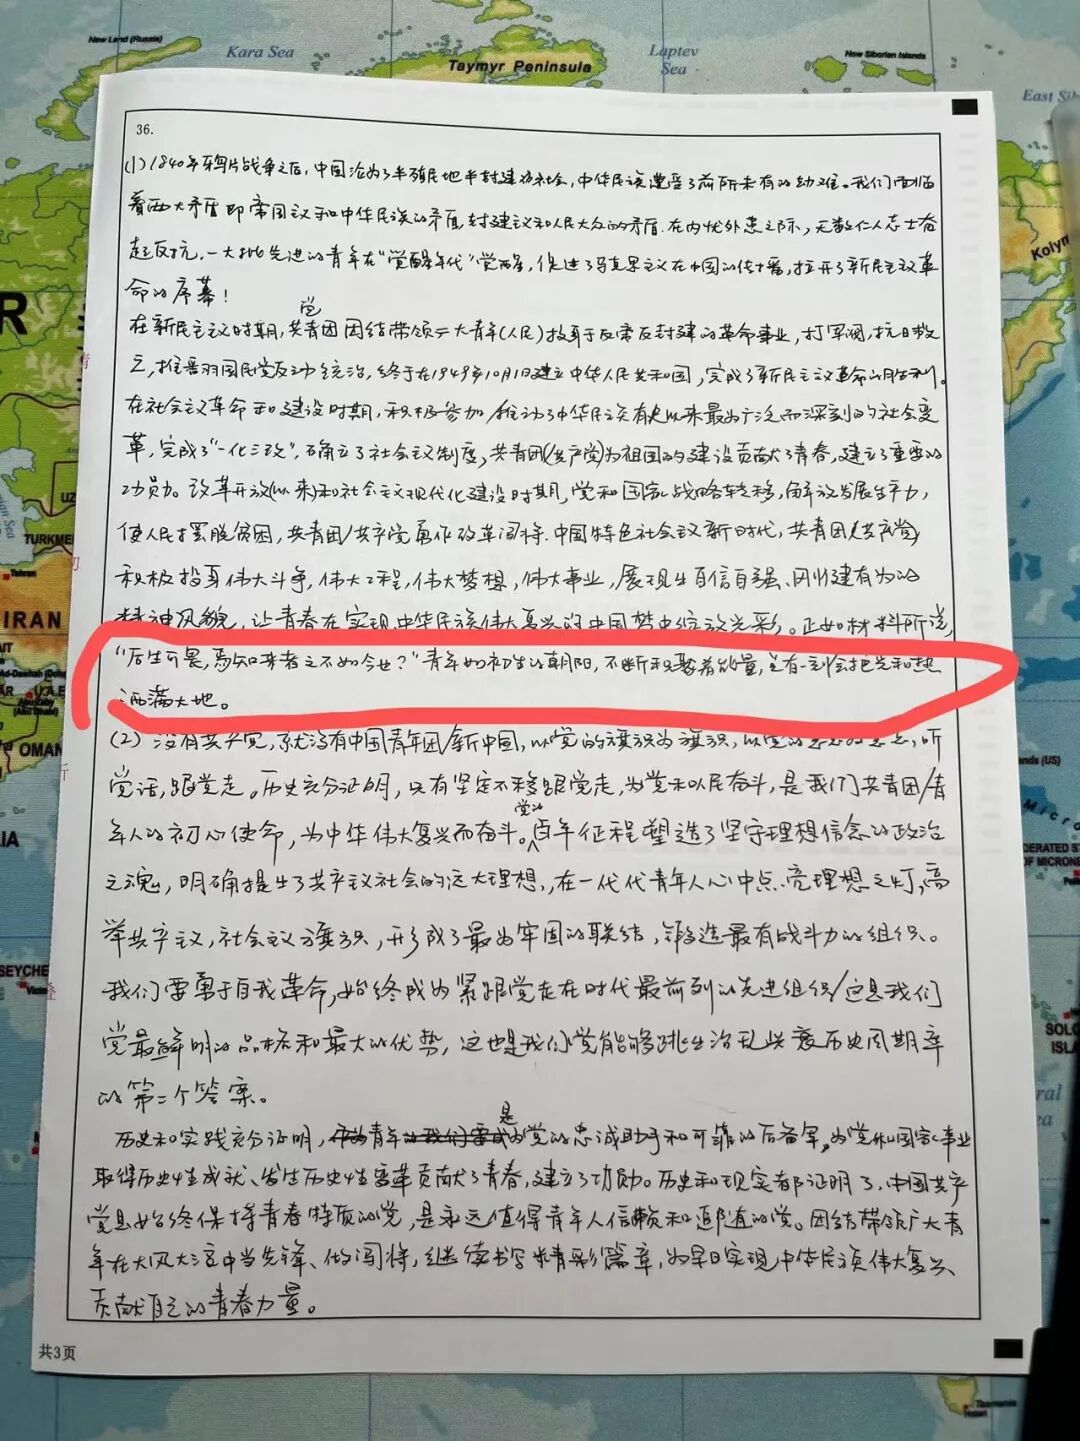 New Land (Russia)
Kara Sea
Taymyr Peninsula
Laptev
Sea
New Siberian Islands
East Sib
Kolym
36.
(1) 1840年鸦片战争之后，中国沦为了半殖民地半封建社会，中华民族遭受了前所未有的劫难。我们面临
着两大矛盾即帝国主义和中华民族的矛盾，封建主义和人民大众的矛盾.在内忧外患之际，无数仁人志士奋
起反抗，一大批先进的青年在“觉醒年代”觉醒，促进了马克思主义在中国的传播，拉开了新民主主义革
命的序幕！
党
在新民主主义时期，共青团团结带领广大青年(人民)投身于反帝反封建的革命事业，打军阀，抗日救
亡，推翻国民党反动统治，终于在1949年10月1日建立中华人民共和国，完成了新民主主义革命的胜利。
在社会主义革命和建设时期，积极参加/推动了中华民族有史以来最为广泛而深刻的社会变
革，完成了“一化三改”，确立了社会主义制度，共青团(共产党)为祖国的建设贡献了青春，建立了重要的
功勋。改革开放(以来)和社会主义现代化建设时期，党和国家战略转移，解放发展生产力，
使人民摆脱贫困，共青团/共产党勇作改革闯将.中国特色社会主义新时代，共青团(共产党)
积极投身伟大斗争，伟大工程，伟大梦想，伟大事业，展现出自信自强、刚健有为的
精神风貌，让青春在实现中华民族伟大复兴的中国梦中绽放光彩。正如材料所说，
“后生可畏，焉知来者之不如今也？”青年如初生的朝阳，不断积聚着能量，总有一刻会把光和热
洒满大地。
(2) 没有共产党，就没有中国青年团/新中国，以党的旗帜为旗帜，以党的意志为意志，听
党话，跟党走。历史充分证明，只有坚定不移跟党走，为党和人民奋斗，是我们共青团/青
党的
年人的初心使命，为中华伟大复兴而奋斗。百年征程塑造了坚守理想信念的政治
之魂，明确提出了共产主义社会的远大理想，在一代代青年人心中点亮理想之灯，高
举共产主义，社会主义旗帜，形成了最为牢固的联结，锻造最有战斗力的组织。
我们要勇于自我革命，始终成为紧跟党走在时代最前列的先进组织/这是我们
党最鲜明的品格和最大的优势，这也是我们党能够跳出治乱兴衰历史周期率
的第二个答案。
是
历史和实践充分证明，青年为党的忠诚助手和可靠的后备军，为党和国家事业
取得历史性成就、发生历史性变革贡献了青春，建立了功勋。历史和现实都证明了，中国共产
党是始终保持青春特质的党，是永远值得青年人信赖和追随的党。团结带领广大青
年在大风大浪中当先锋、做闯将，继续书写精彩篇章，为早日实现中华民族伟大复兴、
贡献自己的青春力量。
共3页
R
UZ
TURKME
Tehran
IRAN
QATAR
U.A.E
OMAN
SEYCHE
Victo
nds (US)
Micro
DERATED S
OF MICRONE
SOLO
ISLA
ral
ea
Tasmania